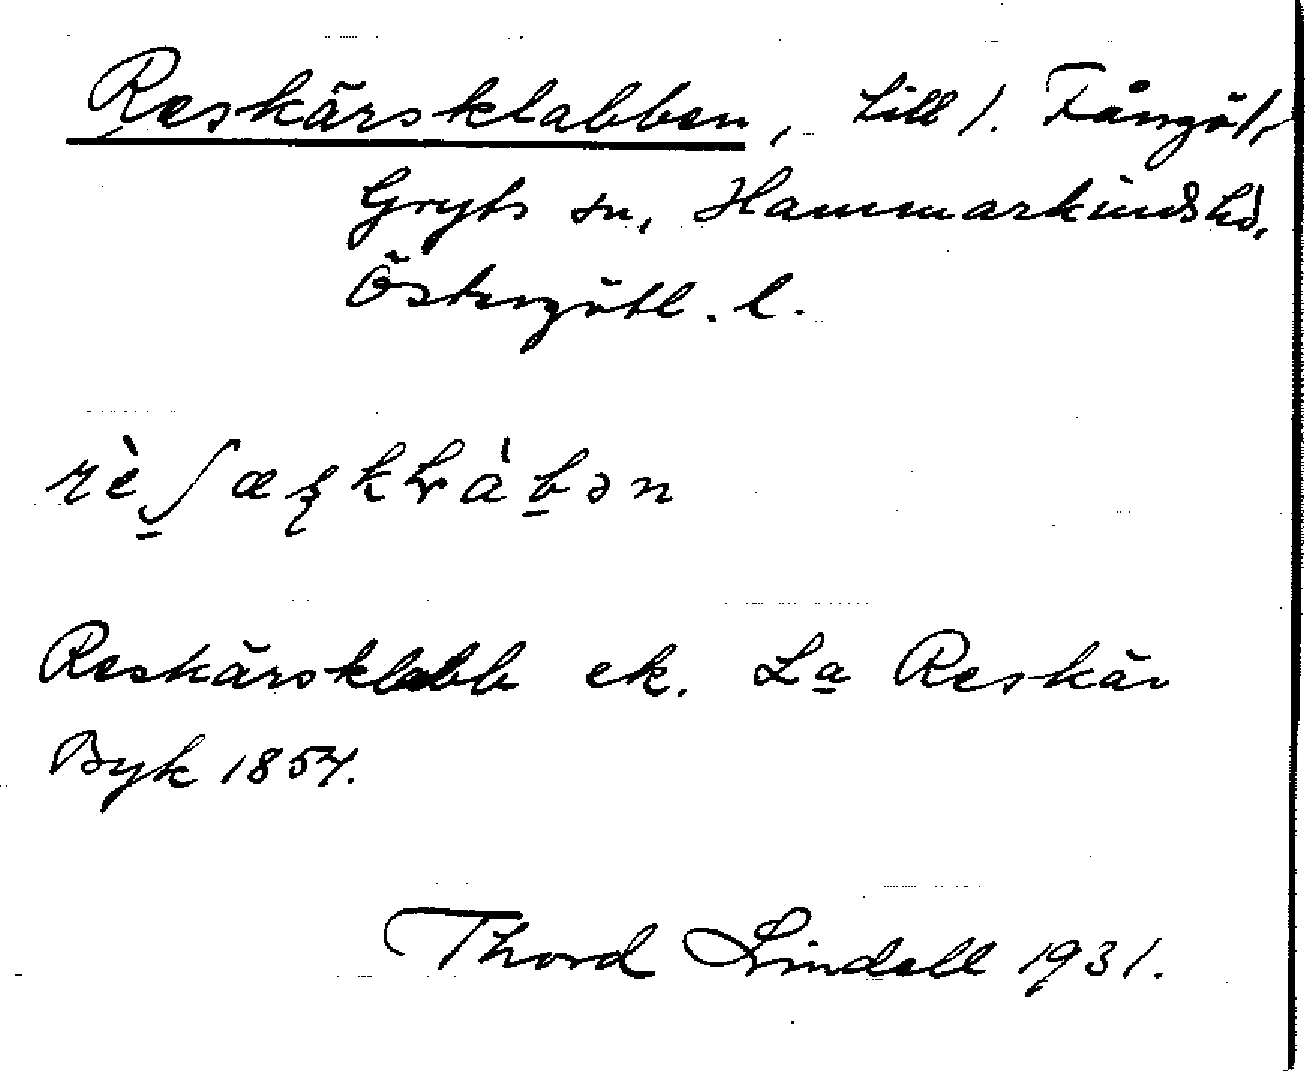 Reskärsklabben, till 1. Fångö 1,
Gryts sn, Hammarkinds hd,
Östergötl. l.
rèʃæʂkḷàbən
Reskärsklabb ek. La Reskär
Byk 1854.
Thord Lindell 1931.